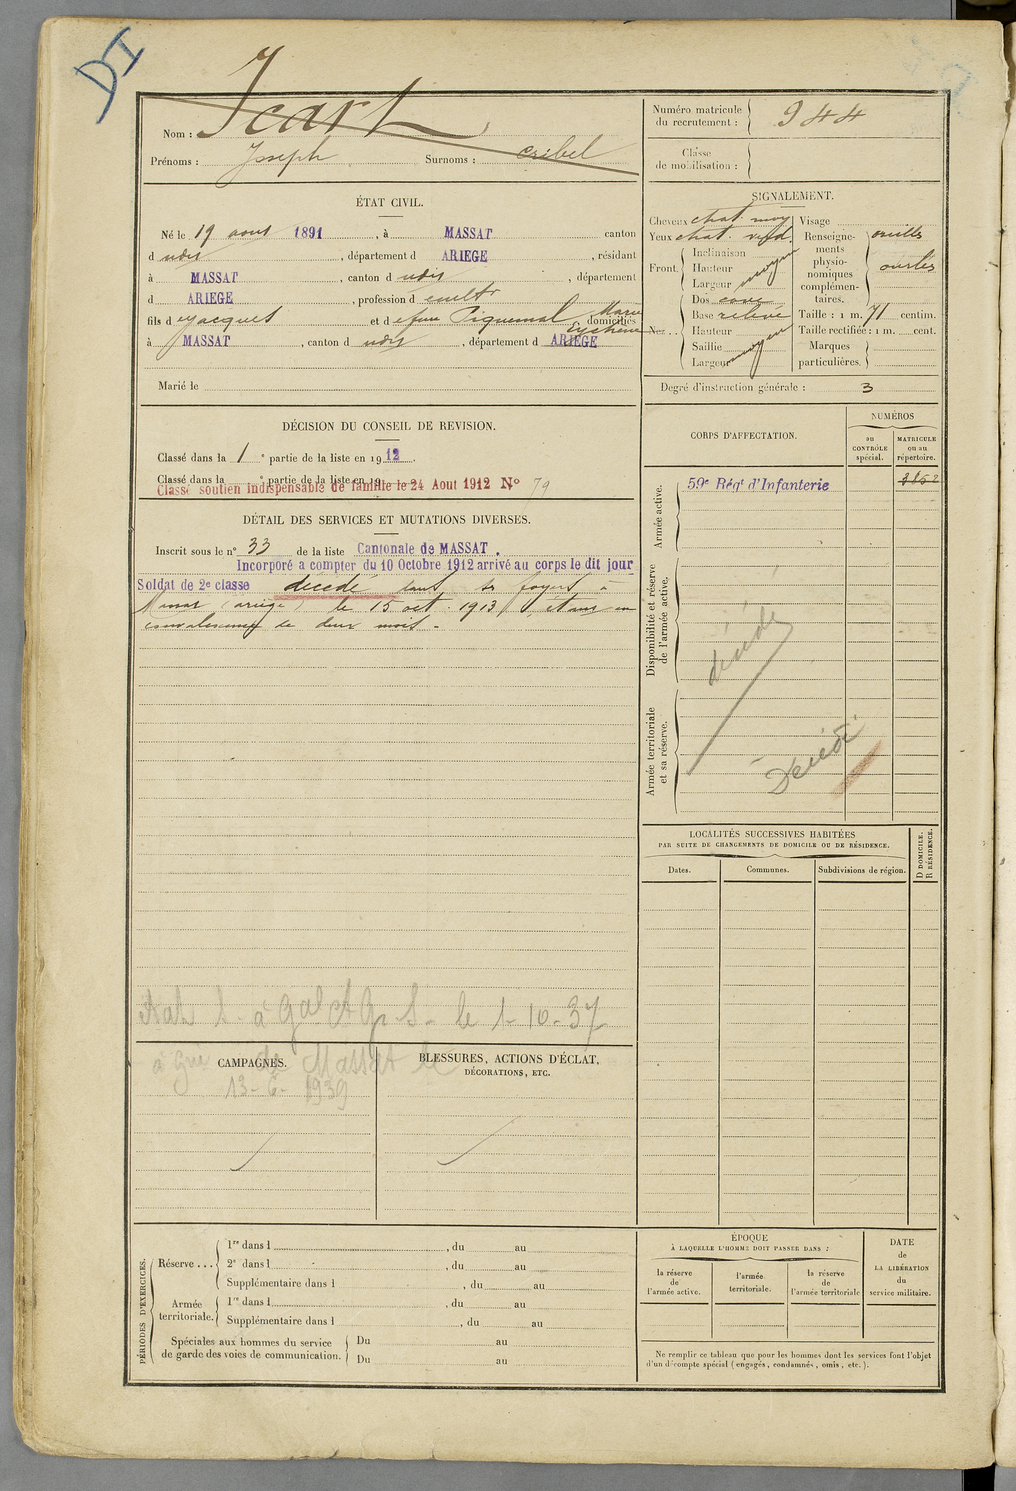 DI
Nom : Icart
Prénoms : Joseph Surnoms : cribel
Numéro matricule du recrutement : 944
Classe de mobilisation :
ÉTAT CIVIL.
Né le 19 aout 1891, à MASSAT canton
d udit, département d ARIEGE, résidant
à MASSAT, canton d udit, département
d ARIEGE, profession d cultr
fils d e Jacques et d e feue Piquemal Marie Eychenne domiciliés
à MASSAT, canton d udit, département d ARIEGE
Marié le
SIGNALEMENT.
Cheveux chat. moy
Yeux chat. verd.
Front.
Inclinaison
Hauteur
Largeur moyen
Nez..
Dos cave
Base relevé
Hauteur
Saillie
Largeur moyen
Visage
Renseignements physionomiques complémentaires. oreilles ourlées
Taille : 1 m. 71 centim.
Taille rectifiée : 1 m. cent.
Marques particulières.
Degré d'instruction générale : 3
DÉCISION DU CONSEIL DE REVISION.
Classé dans la 1e partie de la liste en 1912.
Classé dans la e partie de la liste en 19
Classé soutien indispensable de famille le 24 Aout 1912 No 79
DÉTAIL DES SERVICES ET MUTATIONS DIVERSES.
Inscrit sous le no 33 de la liste Cantonale de MASSAT.
Incorporé a compter du 10 Octobre 1912 arrivé au corps le dit jour
Soldat de 2e classe décédé dans ses foyers à
Massat (ariège) le 15 oct 1913, étant en
convalescence de deux mois.
CORPS D'AFFECTATION.
NUMÉROS
au CONTRÔLE spécial.
MATRICULE ou au répertoire.
Armée active.
59e Régt d'Infanterie
Disponibilité et réserve de l'armée active.
décédé
Armée territoriale et sa réserve.
Décédé
LOCALITÉS SUCCESSIVES HABITÉES
PAR SUITE DE CHANGEMENTS DE DOMICILE OU DE RÉSIDENCE.
Dates.
Communes.
Subdivisions de région.
D DOMICILE.
R RÉSIDENCE.
le 1-10-37
de Massat le
13-6-1939
CAMPAGNES.
BLESSURES, ACTIONS D'ÉCLAT,
DÉCORATIONS, ETC.
PÉRIODES D'EXERCICES.
Réserve ...
1re dans l , du au
2e dans l , du au
Supplémentaire dans l , du au
Armée territoriale.
1re dans l , du au
Supplémentaire dans l , du au
Spéciales aux hommes du service de garde des voies de communication.
Du au
Du au
ÉPOQUE
À LAQUELLE L'HOMME DOIT PASSER DANS :
la réserve de l'armée active.
l'armée territoriale.
la réserve de l'armée territoriale
DATE de LA LIBÉRATION du service militaire.
Ne remplir ce tableau que pour les hommes dont les services font l'objet
d'un décompte spécial (engagés, condamnés, omis, etc.).